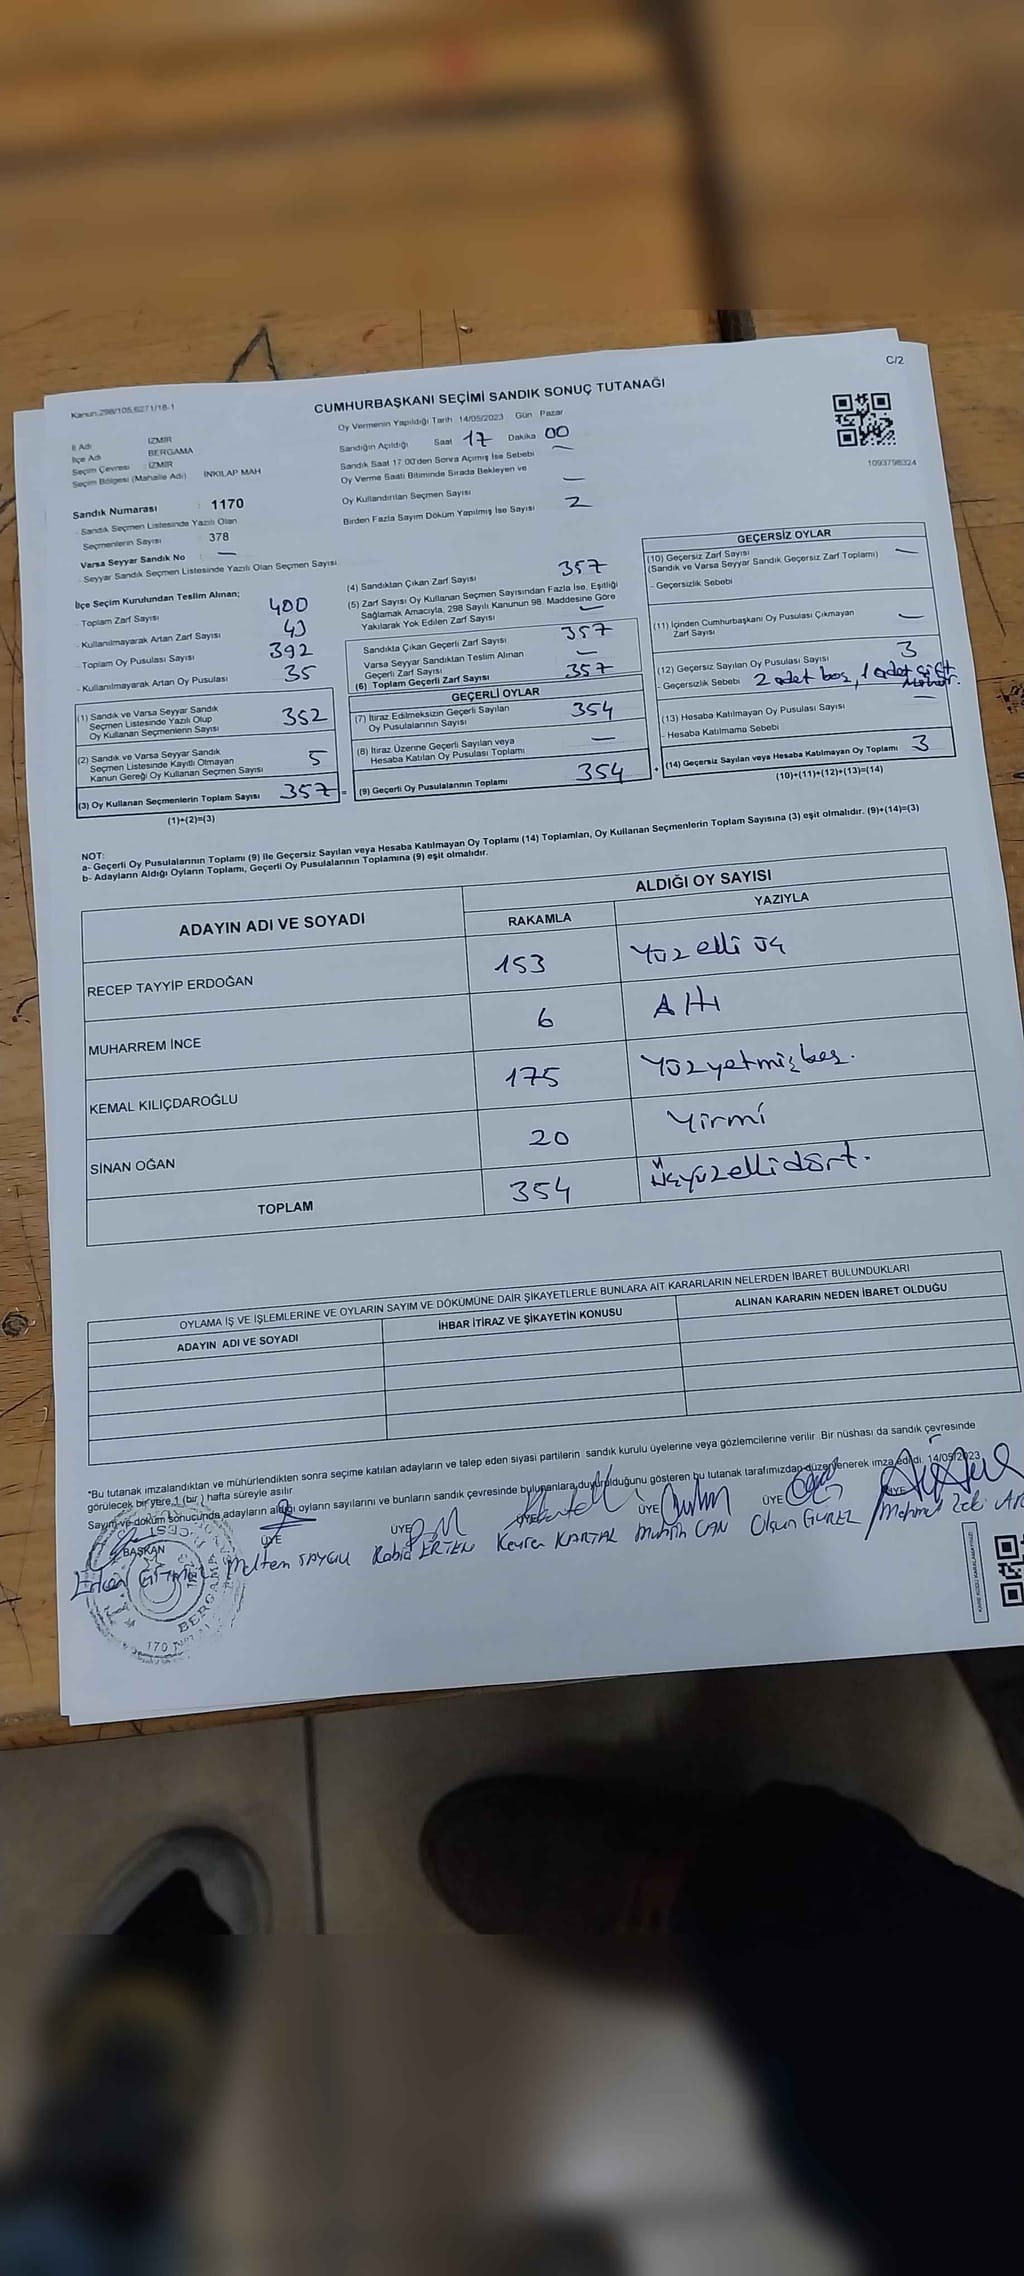 C/2
Kanun:298/105,6271/18-1
CUMHURBAŞKANI SEÇİMİ SANDIK SONUÇ TUTANAĞI
İl Adı İZMİR
İlçe Adı BERGAMA
Seçim Çevresi : İZMİR
Seçim Bölgesi (Mahalle Adı) İNKILAP MAH
Sandık Numarası : 1170
- Sandık Seçmen Listesinde Yazılı Olan
Seçmenlerin Sayısı 378
Varsa Seyyar Sandık No : —
- Seyyar Sandık Seçmen Listesinde Yazılı Olan Seçmen Sayısı
Oy Vermenin Yapıldığı Tarih 14/05/2023 Gün Pazar
Sandığın Açıldığı Saat 17 Dakika 00
Sandık Saat 17:00'den Sonra Açımış İse Sebebi —
Oy Verme Saati Bitiminde Sırada Bekleyen ve
Oy Kullandırılan Seçmen Sayısı —
Birden Fazla Sayım Döküm Yapılmış İse Sayısı 2
1093798324
İlçe Seçim Kurulundan Teslim Alınan;
- Toplam Zarf Sayısı 400
- Kullanılmayarak Artan Zarf Sayısı 43
- Toplam Oy Pusulası Sayısı 392
- Kullanılmayarak Artan Oy Pusulası 35
(1) Sandık ve Varsa Seyyar Sandık
Seçmen Listesinde Yazılı Olup
Oy Kullanan Seçmenlerin Sayısı 352
(2) Sandık ve Varsa Seyyar Sandık
Seçmen Listesinde Kayıtlı Olmayan
Kanun Gereği Oy Kullanan Seçmen Sayısı 5
(3) Oy Kullanan Seçmenlerin Toplam Sayısı 357 =
(1)+(2)=(3)
(4) Sandıktan Çıkan Zarf Sayısı 357
(5) Zarf Sayısı Oy Kullanan Seçmen Sayısından Fazla İse, Eşitliği
Sağlamak Amacıyla, 298 Sayılı Kanunun 98. Maddesine Göre
Yakılarak Yok Edilen Zarf Sayısı —
Sandıkta Çıkan Geçerli Zarf Sayısı 357
Varsa Seyyar Sandıktan Teslim Alınan
Geçerli Zarf Sayısı —
(6) Toplam Geçerli Zarf Sayısı 357
GEÇERLİ OYLAR
(7) İtiraz Edilmeksizin Geçerli Sayılan
Oy Pusulalarının Sayısı 354
(8) İtiraz Üzerine Geçerli Sayılan veya
Hesaba Katılan Oy Pusulası Toplamı —
(9) Geçerli Oy Pusulalarının Toplamı 354 +
GEÇERSİZ OYLAR
(10) Geçersiz Zarf Sayısı —
(Sandık ve Varsa Seyyar Sandık Geçersiz Zarf Toplamı)
- Geçersizlik Sebebi
(11) İçinden Cumhurbaşkanı Oy Pusulası Çıkmayan
Zarf Sayısı —
(12) Geçersiz Sayılan Oy Pusulası Sayısı 3
- Geçersizlik Sebebi 2 adet boş, 1 adet çift
mühür.
(13) Hesaba Katılmayan Oy Pusulası Sayısı —
- Hesaba Katılmama Sebebi
(14) Geçersiz Sayılan veya Hesaba Katılmayan Oy Toplamı 3
(10)+(11)+(12)+(13)=(14)
NOT:
a- Geçerli Oy Pusulalarının Toplamı (9) ile Geçersiz Sayılan veya Hesaba Katılmayan Oy Toplamı (14) Toplamları, Oy Kullanan Seçmenlerin Toplam Sayısına (3) eşit olmalıdır. (9)+(14)=(3)
b- Adayların Aldığı Oyların Toplamı, Geçerli Oy Pusulalarının Toplamına (9) eşit olmalıdır.
ADAYIN ADI VE SOYADI
ALDIĞI OY SAYISI
RAKAMLA YAZIYLA
RECEP TAYYİP ERDOĞAN 153 Yüz elli üç
MUHARREM İNCE 6 Altı
KEMAL KILIÇDAROĞLU 175 Yüzyetmişbeş.
SİNAN OĞAN 20 Yirmi
TOPLAM 354 Üçyüzellidört.
OYLAMA İŞ VE İŞLEMLERİNE VE OYLARIN SAYIM VE DÖKÜMÜNE DAİR ŞİKAYETLERLE BUNLARA AİT KARARLARIN NELERDEN İBARET BULUNDUKLARI
ADAYIN ADI VE SOYADI
İHBAR İTİRAZ VE ŞİKAYETİN KONUSU
ALINAN KARARIN NEDEN İBARET OLDUĞU
*Bu tutanak imzalandıktan ve mühürlendikten sonra seçime katılan adayların ve talep eden siyasi partilerin sandık kurulu üyelerine veya gözlemcilerine verilir. Bir nüshası da sandık çevresinde
görülecek bir yere 1 (bir) hafta süreyle asılır.
Sayım ve döküm sonucunda adayların aldığı oyların sayılarını ve bunların sandık çevresinde bulunanlara duyurulduğunu gösteren bu tutanak tarafımızdan düzenlenerek imza edildi. 14/05/2023
BAŞKAN ÜYE ÜYE ÜYE ÜYE ÜYE ÜYE
Meltem SAYGILI Rabia ERTEN KARTAL Muhsin CAN Olsun GÜREL Mehmet Zeki
BERGAMA
KARE KODU KARALAMAYINIZ